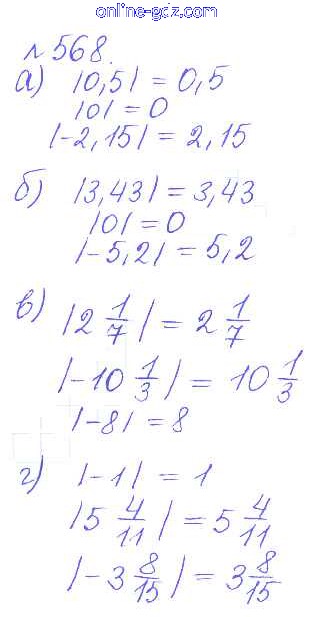 online-gdz.com
№ 568.
а) |0,5| = 0,5
|0| = 0
|-2,15| = 2,15
б) |3,43| = 3,43
|0| = 0
|-5,2| = 5,2
в) |2 1/7| = 2 1/7
|-10 1/3| = 10 1/3
|-8| = 8
г) |-1| = 1
|5 4/11| = 5 4/11
|-3 8/15| = 3 8/15